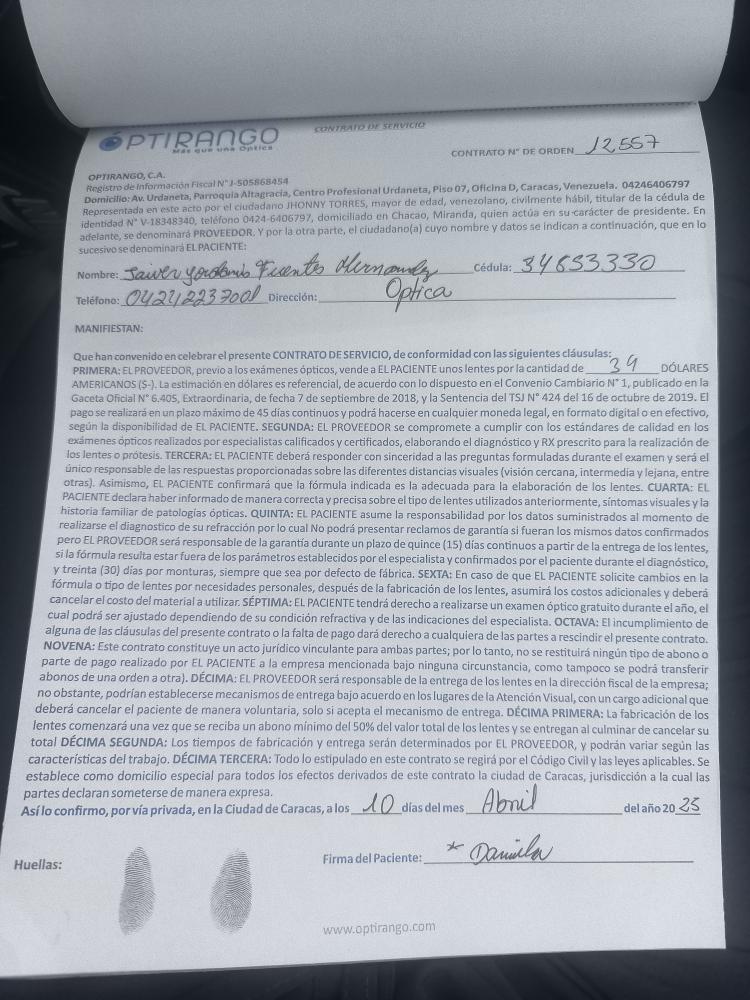 ÓPTIRANGO
Más que una Óptica
CONTRATO DE SERVICIO
CONTRATO N° DE ORDEN 12.557
OPTIRANGO, C.A.
Registro de Información Fiscal N° J-505868454
Domicilio: Av. Urdaneta, Parroquia Altagracia, Centro Profesional Urdaneta, Piso 07, Oficina D, Caracas, Venezuela. 04246406797
Representada en este acto por el ciudadano JHONNY TORRES, mayor de edad, venezolano, civilmente hábil, titular de la cédula de
identidad N° V-18348340, teléfono 0424-6406797, domiciliado en Chacao, Miranda, quien actúa en su carácter de presidente. En
adelante, se denominará PROVEEDOR. Y por la otra parte, el ciudadano(a) cuyo nombre y datos se indican a continuación, que en lo
sucesivo se denominará EL PACIENTE:
Nombre: Fuentes Hernandez Cédula: 34653330
Teléfono: Dirección: Optica
MANIFIESTAN:
Que han convenido en celebrar el presente CONTRATO DE SERVICIO, de conformidad con las siguientes cláusulas:
PRIMERA: EL PROVEEDOR, previo a los exámenes ópticos, vende a EL PACIENTE unos lentes por la cantidad de 39 DÓLARES
AMERICANOS ($-). La estimación en dólares es referencial, de acuerdo con lo dispuesto en el Convenio Cambiario N° 1, publicado en la
Gaceta Oficial N° 6.405, Extraordinaria, de fecha 7 de septiembre de 2018, y la Sentencia del TSJ N° 424 del 16 de octubre de 2019. El
pago se realizará en un plazo máximo de 45 días continuos y podrá hacerse en cualquier moneda legal, en formato digital o en efectivo,
según la disponibilidad de EL PACIENTE. SEGUNDA: EL PROVEEDOR se compromete a cumplir con los estándares de calidad en los
exámenes ópticos realizados por especialistas calificados y certificados, elaborando el diagnóstico y RX prescrito para la realización de
los lentes o prótesis. TERCERA: EL PACIENTE deberá responder con sinceridad a las preguntas formuladas durante el examen y será el
único responsable de las respuestas proporcionadas sobre las diferentes distancias visuales (visión cercana, intermedia y lejana, entre
otras). Asimismo, EL PACIENTE confirmará que la fórmula indicada es la adecuada para la elaboración de los lentes. CUARTA: EL
PACIENTE declara haber informado de manera correcta y precisa sobre el tipo de lentes utilizados anteriormente, síntomas visuales y la
historia familiar de patologías ópticas. QUINTA: EL PACIENTE asume la responsabilidad por los datos suministrados al momento de
realizarse el diagnostico de su refracción por lo cual No podrá presentar reclamos de garantía si fueran los mismos datos confirmados
pero EL PROVEEDOR será responsable de la garantía durante un plazo de quince (15) días continuos a partir de la entrega de los lentes,
si la fórmula resulta estar fuera de los parámetros establecidos por el especialista y confirmados por el paciente durante el diagnóstico,
y treinta (30) días por monturas, siempre que sea por defecto de fábrica. SEXTA: En caso de que EL PACIENTE solicite cambios en la
fórmula o tipo de lentes por necesidades personales, después de la fabricación de los lentes, asumirá los costos adicionales y deberá
cancelar el costo del material a utilizar. SÉPTIMA: EL PACIENTE tendrá derecho a realizarse un examen óptico gratuito durante el año, el
cual podrá ser ajustado dependiendo de su condición refractiva y de las indicaciones del especialista. OCTAVA: El incumplimiento de
alguna de las cláusulas del presente contrato o la falta de pago dará derecho a cualquiera de las partes a rescindir el presente contrato.
NOVENA: Este contrato constituye un acto jurídico vinculante para ambas partes; por lo tanto, no se restituirá ningún tipo de abono o
parte de pago realizado por EL PACIENTE a la empresa mencionada bajo ninguna circunstancia, como tampoco se podrá transferir
abonos de una orden a otra). DÉCIMA: EL PROVEEDOR será responsable de la entrega de los lentes en la dirección fiscal de la empresa;
no obstante, podrían establecerse mecanismos de entrega bajo acuerdo en los lugares de la Atención Visual, con un cargo adicional que
deberá cancelar el paciente de manera voluntaria, solo si acepta el mecanismo de entrega. DÉCIMA PRIMERA: La fabricación de los
lentes comenzará una vez que se reciba un abono mínimo del 50% del valor total de los lentes y se entregan al culminar de cancelar su
total DÉCIMA SEGUNDA: Los tiempos de fabricación y entrega serán determinados por EL PROVEEDOR, y podrán variar según las
características del trabajo. DÉCIMA TERCERA: Todo lo estipulado en este contrato se regirá por el Código Civil y las leyes aplicables. Se
establece como domicilio especial para todos los efectos derivados de este contrato la ciudad de Caracas, jurisdicción a la cual las
partes declaran someterse de manera expresa.
Así lo confirmo, por vía privada, en la Ciudad de Caracas, a los 10 días del mes Abril del año 2025
Huellas:
Firma del Paciente: * Daniela
www.optirango.com